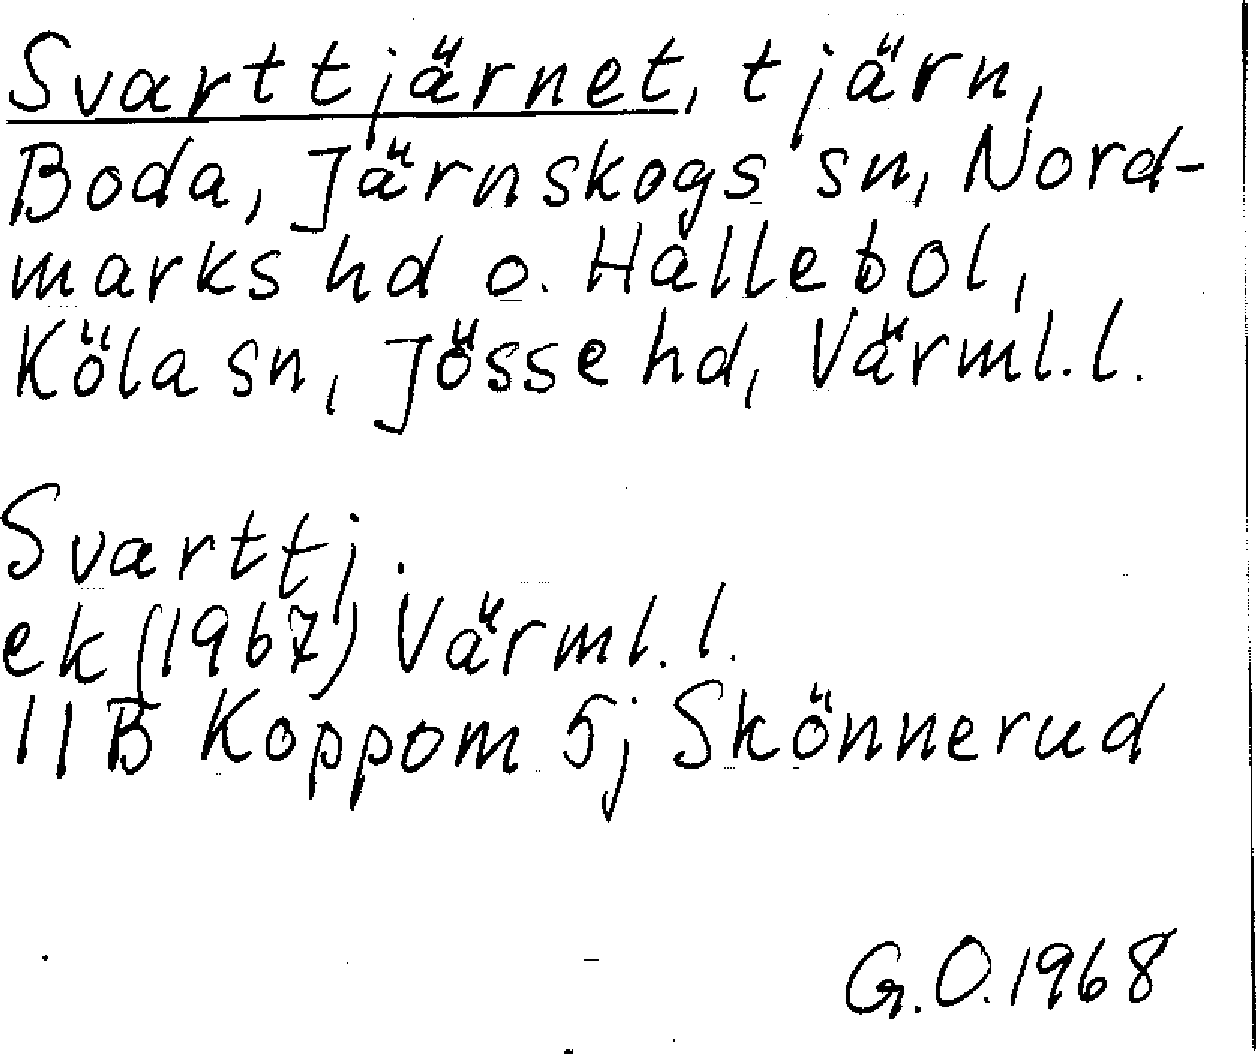 Svarttjärnet, tjärn,
Boda, Järnskogs sn, Nord-
marks hd o. Hallebol,
Köla sn, Jösse hd, Värml.l.
Svarttj.
ek (1967) Värml.l.
11B Koppom 5j Skönnerud
G.O.1968